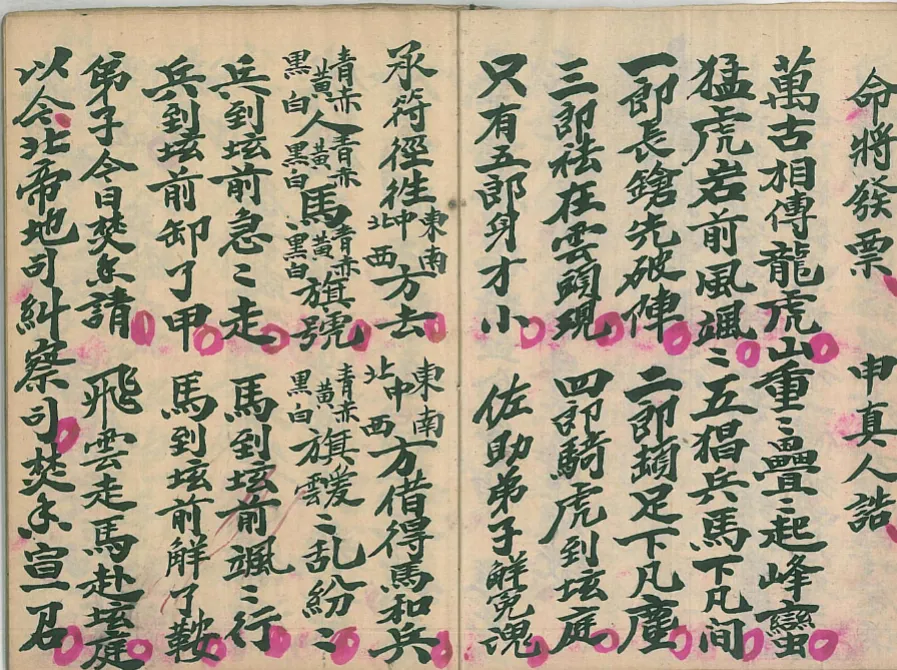 命將發票　申真人誥
萬古相傳龍虎山重〻疊〻起峰巒
猛虎岩前風颯〻五猖兵馬下凡間
一郎長鎗先破陣　二郎頓足下凡塵
三郎祛在雲頭現　四郎騎虎到坛庭
只有五郎身才小　佐助弟子觧冤魂
承符徑徃東南中西北方去　東南中西北方借得馬和兵
青赤黃白黑人青赤黃白黑馬青赤黃白黑旗號　青赤黃白黑旗靉〻乱紛〻
兵到坛前急〻走　馬到坛前颯〻行
兵到坛前卸了甲　馬到坛前解了鞍
弟子今日焚香請　飛雲走馬赴坛庭
以今北帝地司糾察司焚香宣一召